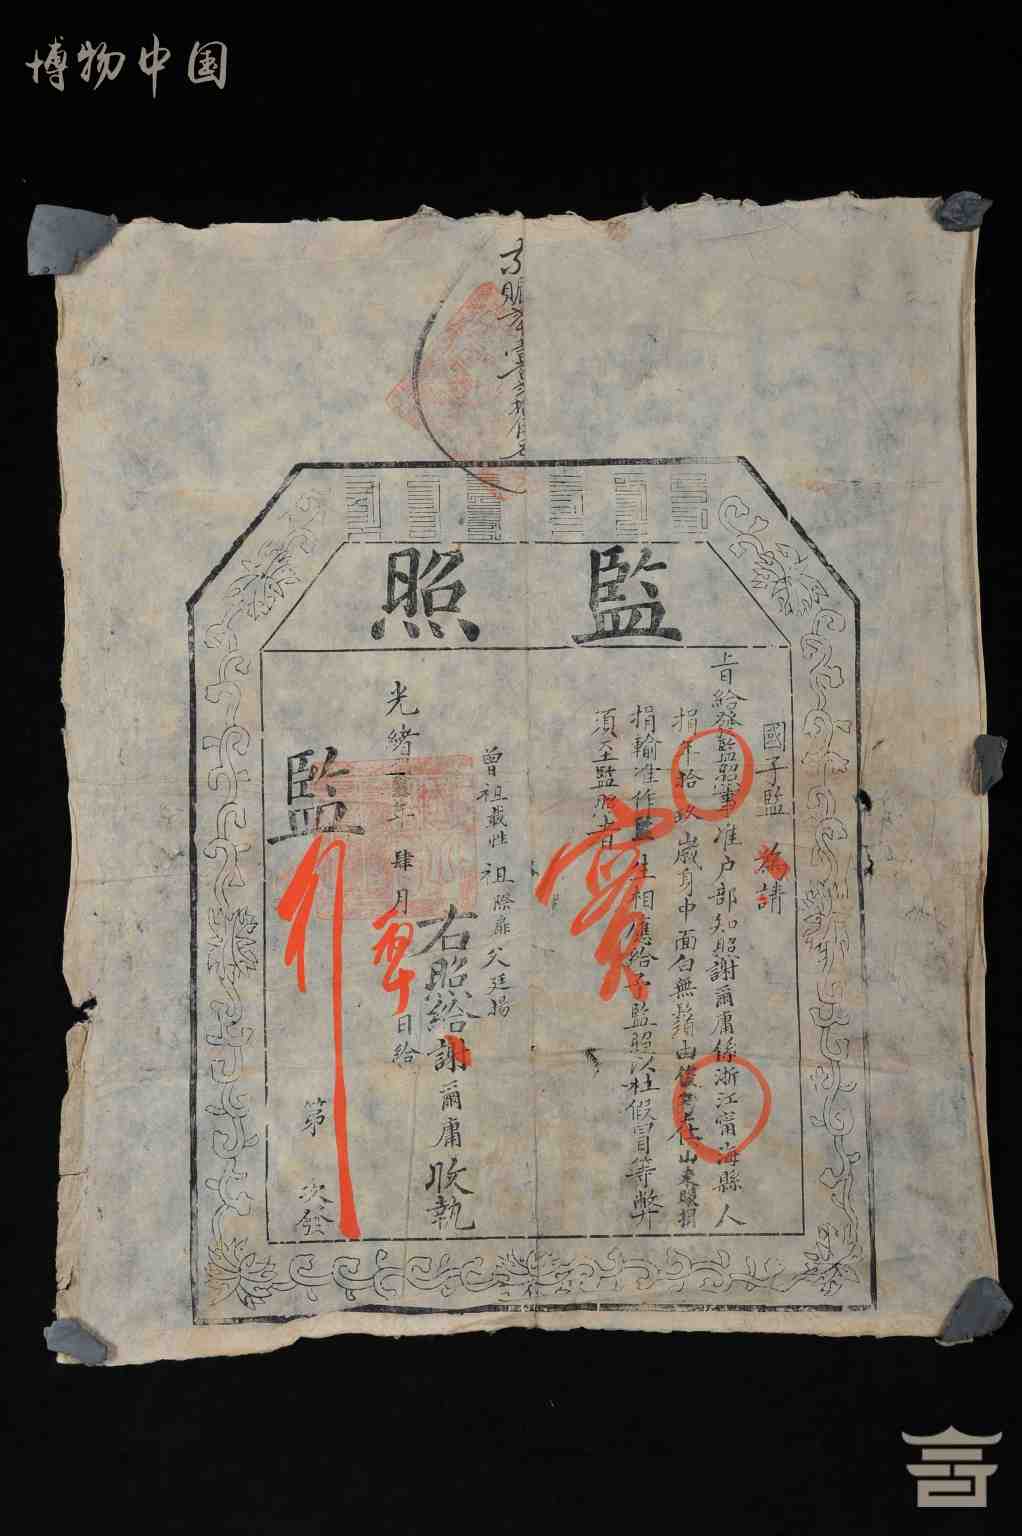 博物中国
監照
國子監為請
旨給發監照事准户部知照謝爾庸係浙江甯海縣人
捐年拾玖歲身中面白無鬚由俊秀在山東賑捐
捐輸准作監生相應給予監照以杜假冒等弊
須至監照者
實
曾祖載性 祖際雍 父廷揚
右照給謝爾庸收執
光緒年肆月日給
監
行
第 次發